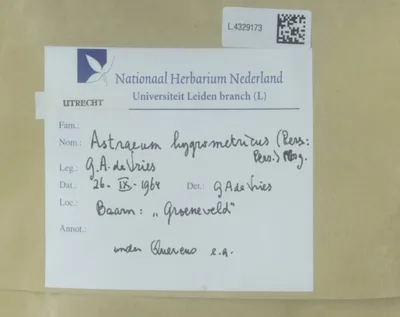 L.4329173
Nationaal Herbarium Nederland
Universiteit Leiden branch (L)
UTRECHT
Fam.:
Nom.: Astraeum hygrometricus (Pers.:
Pers.) Morg.
Leg.: G.A. de Vries
Dat.: 26-IX-1964 Det.: G A de Vries
Loc.: Baarn: „Groeneveld"
Annot.:
under Quercus e.a.